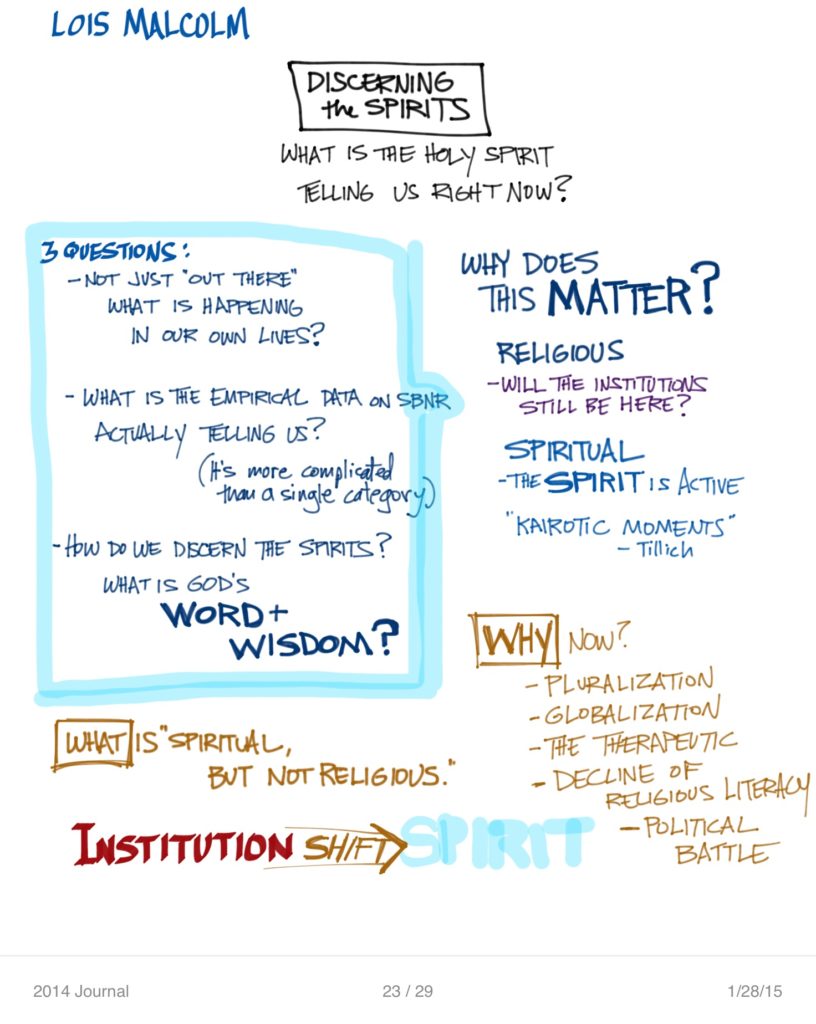 LOIS MALCOLM
DISCERNING
the SPIRITS
WHAT IS THE HOLY SPIRIT
TELLING US RIGHT NOW?
3 QUESTIONS:
- NOT JUST "OUT THERE"
WHAT IS HAPPENING
IN OUR OWN LIVES?
- WHAT IS THE EMPIRICAL DATA ON SBNR
ACTUALLY TELLING US?
(It's more complicated
than a single category)
- HOW DO WE DISCERN THE SPIRITS?
WHAT IS GOD'S
WORD +
WISDOM?
WHY DOES
THIS MATTER?
RELIGIOUS
- WILL THE INSTITUTIONS
STILL BE HERE?
SPIRITUAL
- THE SPIRIT IS ACTIVE
"KAIROTIC MOMENTS"
- Tillich
WHY NOW?
- PLURALIZATION
- GLOBALIZATION
- THE THERAPEUTIC
- DECLINE OF
RELIGIOUS LITERACY
- POLITICAL
BATTLE
WHAT IS "SPIRITUAL,
BUT NOT RELIGIOUS."
INSTITUTION SHIFT SPIRIT
2014 Journal 23 / 29 1/28/15